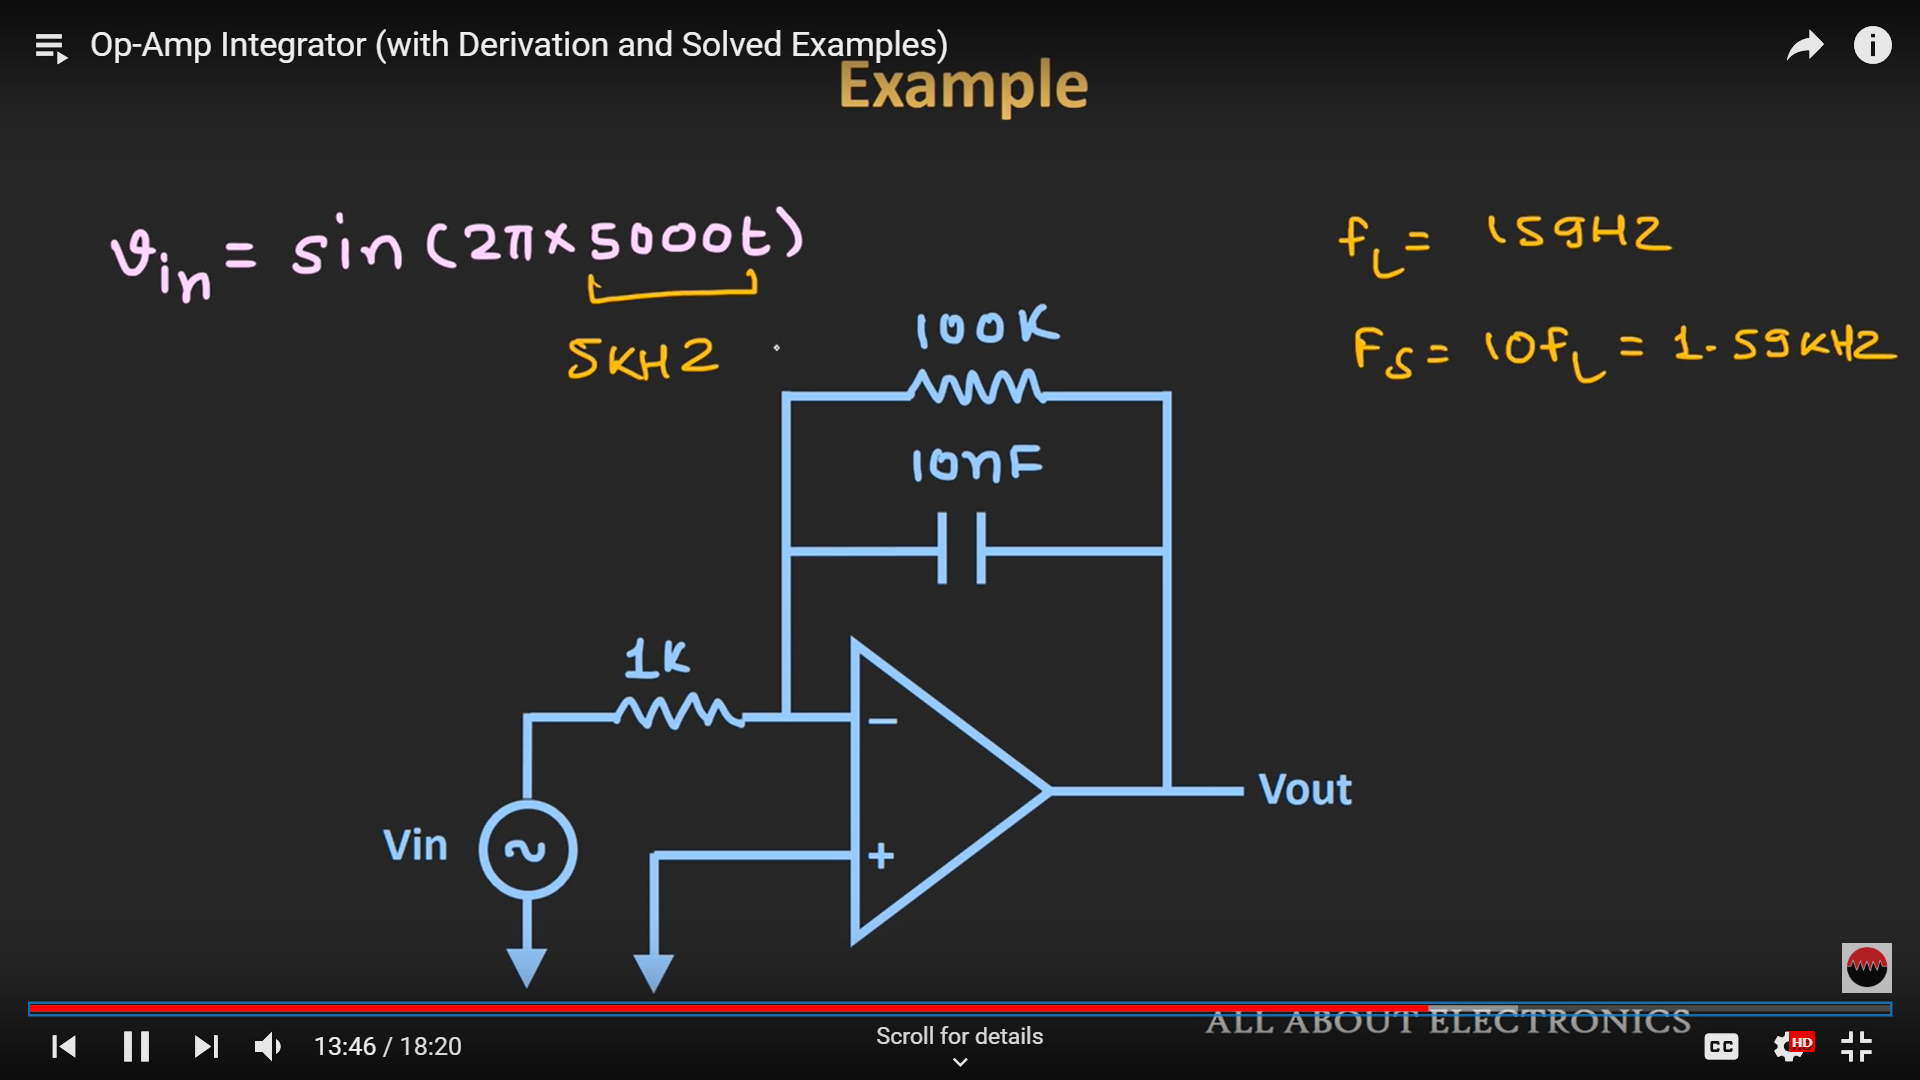 Op-Amp Integrator (with Derivation and Solved Examples)
Example
ϑin = sin (2π × 5000t)
5KHZ
fL = 159HZ
Fs = 10fL = 1.59KHZ
100K
10nF
1K
−
+
Vin
Vout
ALL ABOUT ELECTRONICS
13:46 / 18:20
Scroll for details
CC
HD